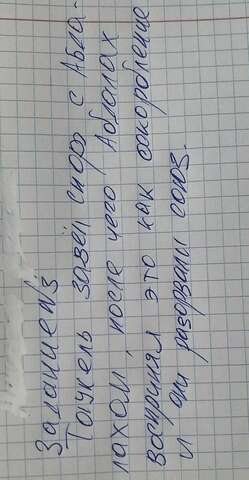 Задание№3
Тауекель завёл спор с Абла-
лахом, после чего Абдлалах
воспринял это как оскорбление
и они разорвали союз.